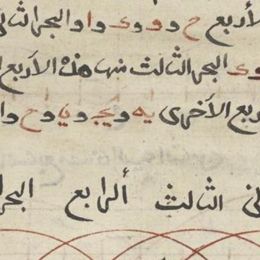 الأربع ح و و و ء و ا و البحر الثا
و ء البحر الثالث منها هذه الأربع ا
ربع الأخرى يه و يج و يا و ح و ا
نى الثالث الرابع البحر